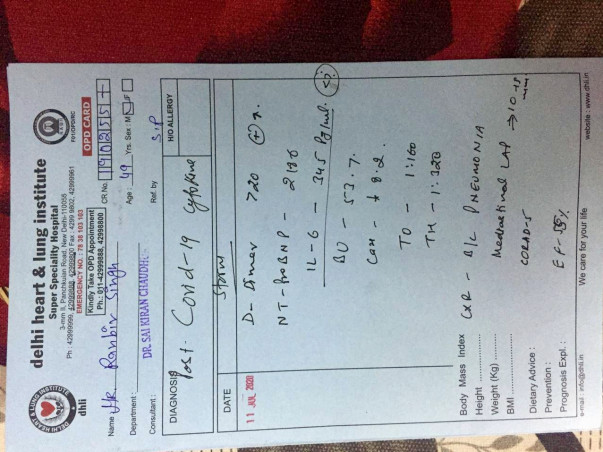 delhi heart & lung institute
Super Speciality Hospital
3-mm II, Panchkuian Road, New Delhi-110055
Ph : 42999999,
EMERGENCY NO.: 78 38 103 103
Kindly Take OPD Appointment
Ph.: 011-42999888, 42998800
OPD CARD
dhli
CR.No. 19102557
Name Mr Ranbir Singh
Age : 49 Yrs. Sex : M F
Department :
Consultant : DR. SAI KIRAN CHAUDH
Ref. by S.P
DIAGNOSIS
H/O ALLERGY
Post. Covid-19 Cytokine
Storm
DATE
11 JUL 2020
D-Dimer 720
NT-ProBNP - 2136
IL-6 - 345 Pg/ml.
BU - 53.7.
TO - 1:160
TH - 1:320
CXR - B/L PNEUMONIA
Mediastinal LAP
CORAD-5
EF-35%
Body Mass Index
Height
Weight (Kg)
BMI
Dietary Advice :
Prevention :
Prognosis Expl. :
e-mail : info@dhli.in
We care for your life
website : www.dhli.in